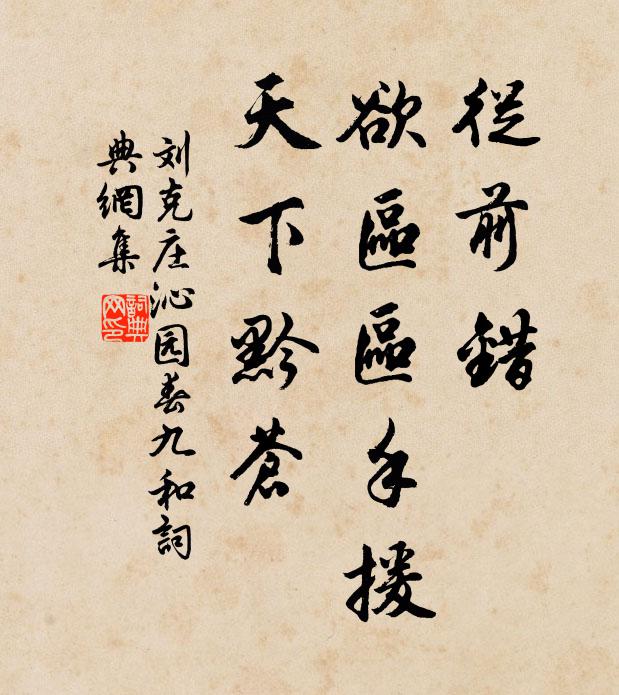 從前錯
欲區區手援
天下黔蒼
刘克庄沁园春九和詞
典網集
詞典
网印